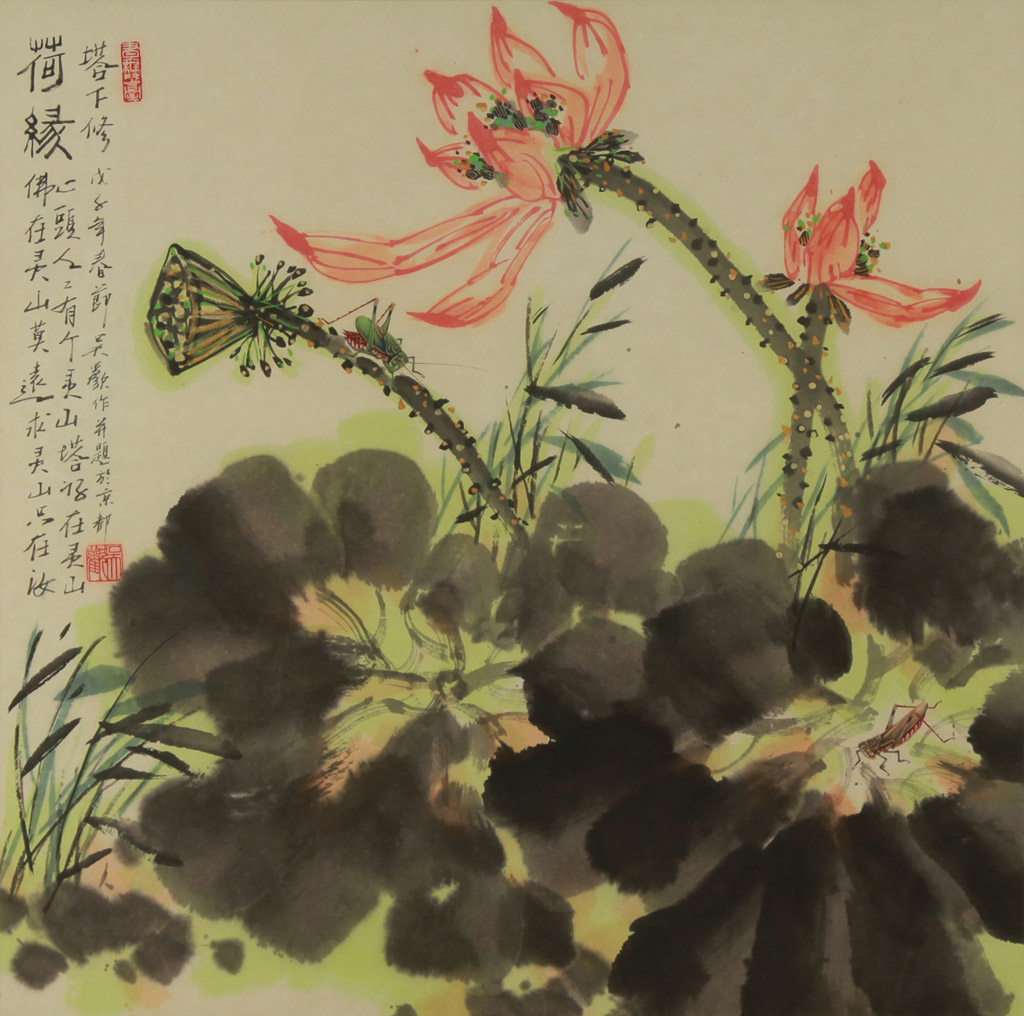 荷緣
佛在灵山莫遠求灵山只在汝
心頭人人有个灵山塔好在灵山
塔下修 戊子年春節吴歡作并題於京都
吴歡